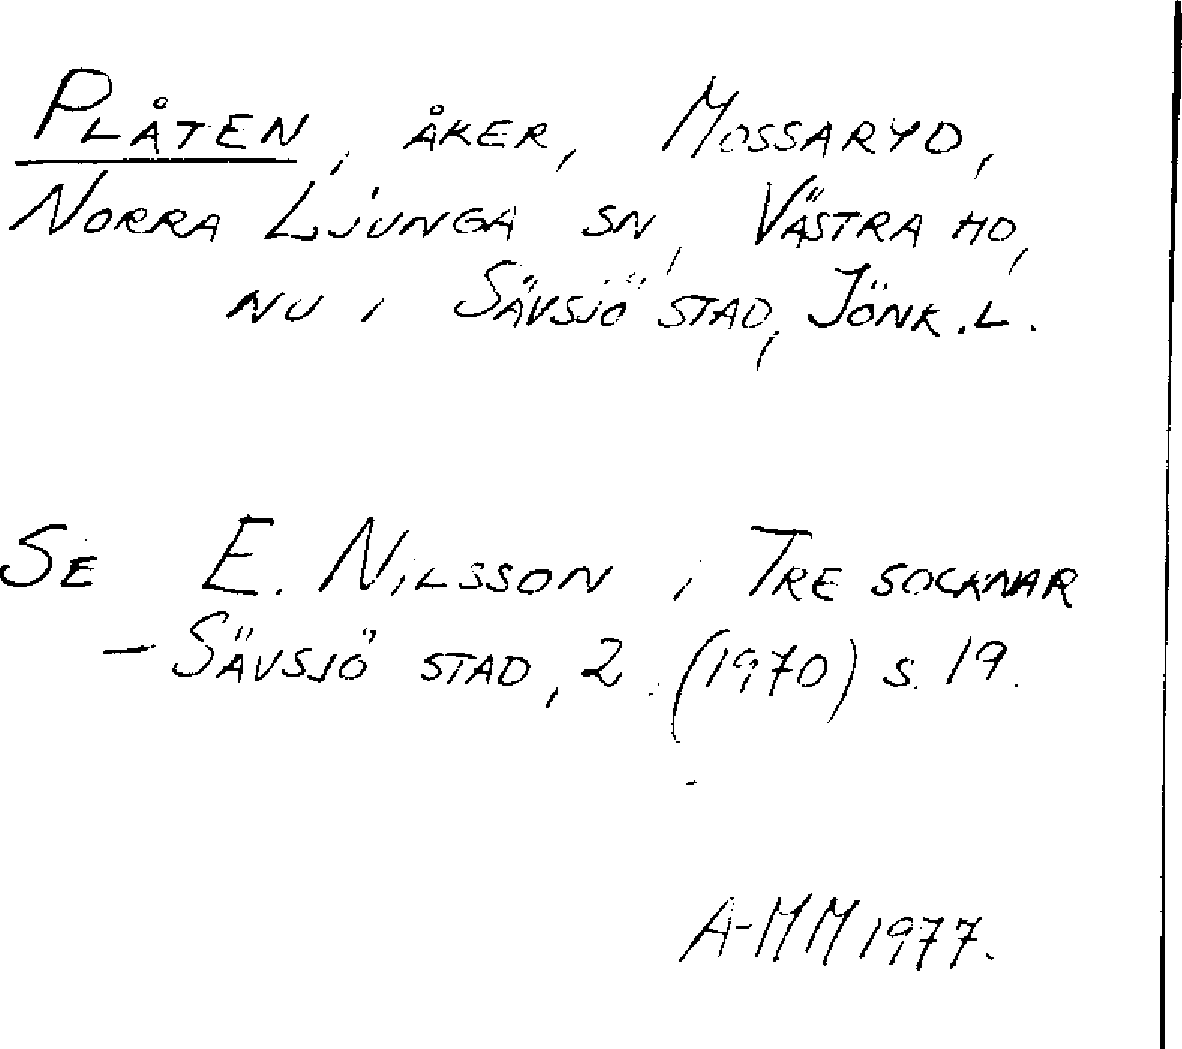 PLÅTEN, ÅKER, MOSSARYD,
NORRA LJUNGA SN, VÄSTRA HD,
NU I SÄVSJÖ STAD, JÖNK.L.
SE E. NILSSON i TRE SOCKNAR
– SÄVSJÖ STAD, 2. (1970) S. 19.
A-MM 1977.